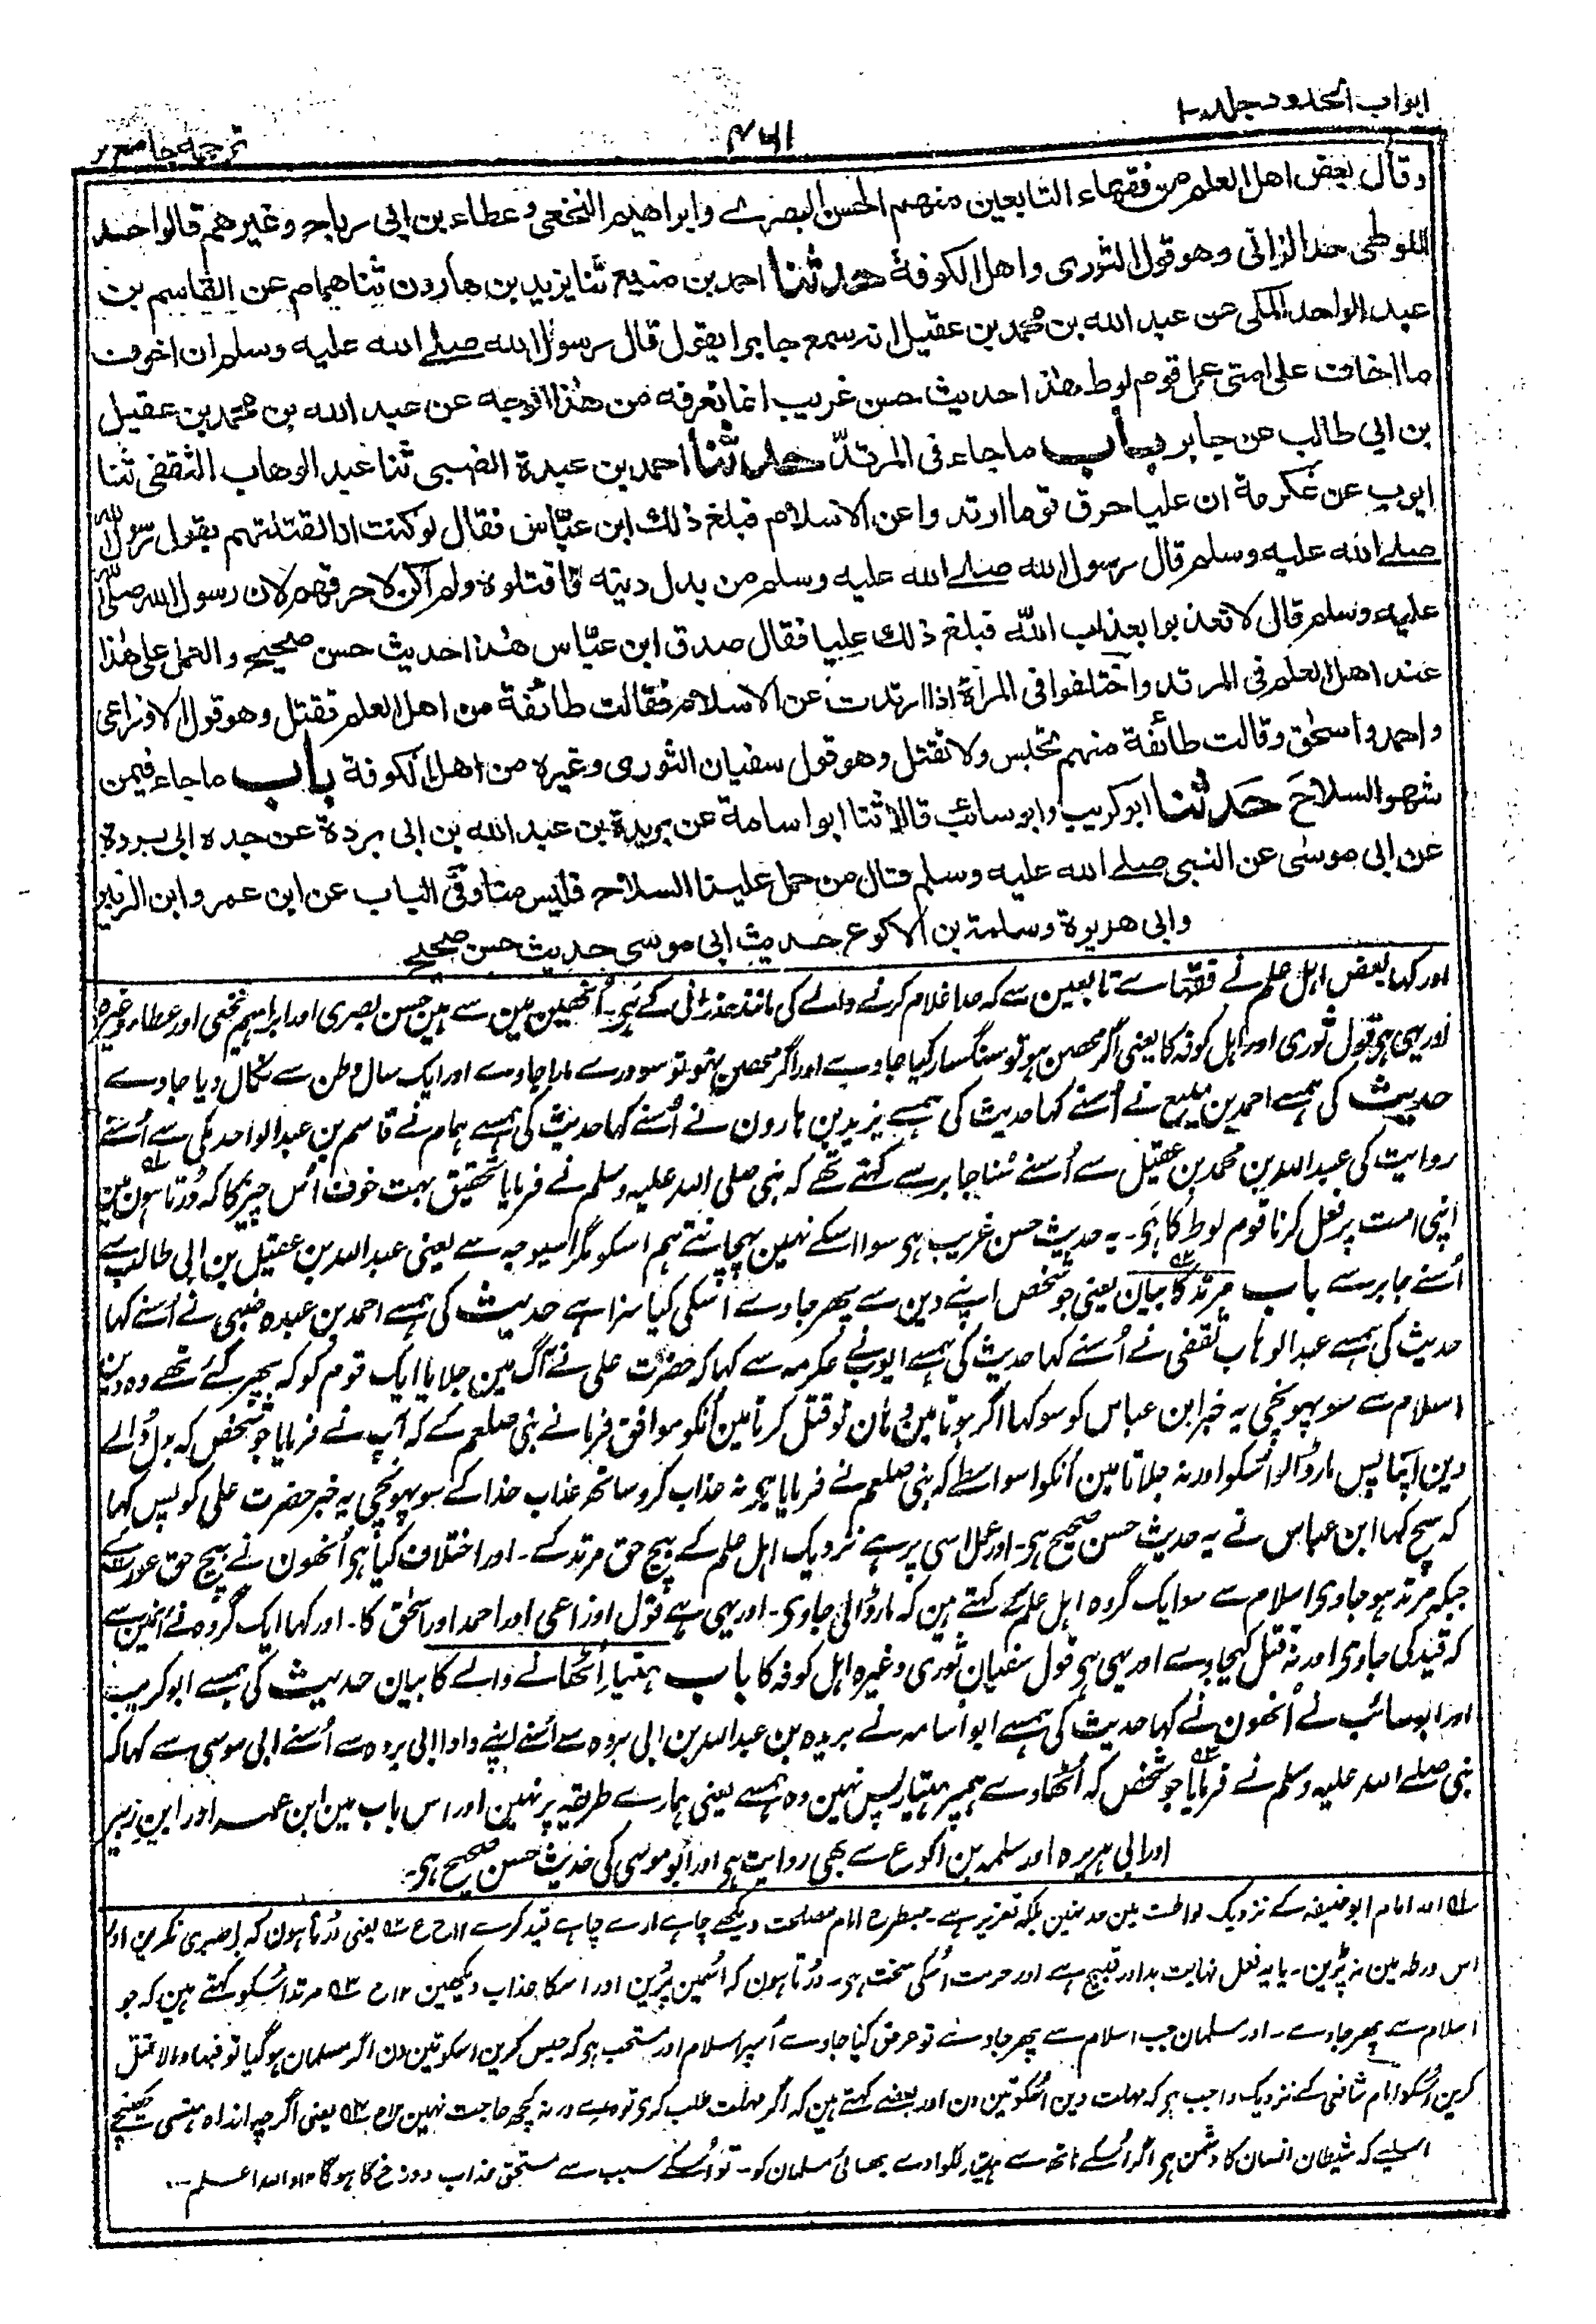 ابواب الحدود جلد ١
٤٦١
ترجمہ جامع تر
وقال بعض اهل العلم من فقهاء التابعين منهم الحسن البصرے وابراهيم النخعی وعطاء بن ابی رباح وغيرهم قالوا حد
اللوطی حد الزانی وهو قول الثوری واهل الكوفة حدثنا احمد بن منيع ثنا يزيد بن هارون ثنا همام عن القاسم بن
عبد الواحد المكی عن عبد الله بن محمد بن عقيل انه سمع جابرا يقول قال رسول الله صلے الله عليه وسلم ان اخوف
ما اخاف علی امتی عمل قوم لوط هذا حديث حسن غريب انما نعرفه من هذا الوجه عن عبد الله بن محمد بن عقيل
بن ابی طالب عن جابر باب ماجاء فی المرتد حدثنا احمد بن عبدة الضبی ثنا عبد الوهاب الثقفی ثنا
ايوب عن عكرمة ان عليا حرق قوما ارتدوا عن الاسلام فبلغ ذلك ابن عباس فقال لو كنت انا لقتلتهم بقول رسول الله
صلے الله عليه وسلم قال رسول الله صلے الله عليه وسلم من بدل دينه فاقتلوه ولم اكن لاحرقهم لان رسول الله صلی الله
عليه وسلم قال لا تعذبوا بعذاب الله فبلغ ذلك عليا فقال صدق ابن عباس هذا حديث حسن صحيح والعمل علی هذا
عند اهل العلم فی المرتد واختلفوا فی المرأة اذا ارتدت عن الاسلام فقالت طائفة من اهل العلم تقتل وهو قول الاوزاعی
واحمد واسحٰق وقالت طائفة منهم تحبس ولا تقتل وهو قول سفيان الثوری وغيره من اهل الكوفة باب ماجاء فيمن
شهر السلاح حدثنا ابو كريب وابو سائب قالا ثنا ابو اسامة عن بريدة بن عبد الله بن ابی بردة عن جده ابی بردة
عن ابی موسٰی عن النبی صلے الله عليه وسلم قال من حمل علينا السلاح فليس منا وفی الباب عن ابن عمر وابن الزبير
وابی هريرة وسلمة بن الاكوع حديث ابی موسی حديث حسن صحيح
اور کہا بعض اہل علم نے فقہا سے تابعین سے کہ حد اغلام کرنے والے کی مانند حد زانی کے ہے۔ اُنھین مین سے ہین حسن بصری اور ابراہیم نخعی اور عطاء وغیرہ
اور یہی ہے قول ثوری اور اہل کوفہ کا یعنی اگر محصن ہو تو سنگسار کیا جاوے اور اگر محصن نہو تو سو دُرے مارا جاوے اور ایک سال وطن سے نکال دیا جاوے
حدیث کی ہمسے احمد بن منیع نے اُسنے کہا حدیث کی ہمسے یزید بن ہارون نے اُسنے کہا حدیث کی ہمسے ہمام نے قاسم بن عبدالواحد مکی سے اُسنے
روایت کی عبداللہ بن محمد بن عقیل سے اُسنے سُنا جابر سے کہتے تھے کہ نبی صلی اللہ علیہ وسلم نے فرمایا تحقیق بہت خوف اُس چیز کا کہ ڈرتا ہون مین
اپنی امت پر فعل کرنا قوم لوط کا ہے۔ یہ حدیث حسن غریب ہی سوا اسکے نہین پہچانتے ہم اسکو مگر اسیوجہ سے یعنی عبداللہ بن عقیل بن ابی طالب سے
اُسنے جابر سے باب مرتد کا بیان یعنی جو شخص اپنے دین سے پھر جاوے اُسکی کیا سزا ہے حدیث کی ہمسے احمد بن عبدہ ضبی نے اُسنے کہا
حدیث کی ہمسے عبدالوہاب ثقفی نے اُسنے کہا حدیث کی ہمسے ایوب نے عکرمہ سے کہا کہ حضرت علی نے آگ مین جلایا ایک قوم کو کہ پھر گئے تھے وہ دین
اسلام سے سو پہونچی یہ خبر ابن عباس کو سو کہا اگر ہوتا مین وہان تو قتل کرتا مین اُنکو موافق فرمانے نبی صلعم کے کہ آپ نے فرمایا جو شخص کہ بدل ڈالے
دین اپنا پس مار ڈالو اُسکو اور نہ جلاتا مین اُنکو اسواسطے کہ نبی صلعم نے فرمایا ہے نہ عذاب کرو ساتھ عذاب خدا کے سو پہونچی یہ خبر حضرت علی کو پس کہا
کہ سچ کہا ابن عباس نے یہ حدیث حسن صحیح ہی۔ اور عمل اسی پر ہے نزدیک اہل علم کے بیچ حق مرتد کے۔ اور اختلاف کیا ہی اُنھون نے بیچ حق عورت کے
جبکہ مرتد ہو جاوی اسلام سے سو ایک گروہ اہل علم کے کہتے ہین کہ مار ڈالی جاوی۔ اور یہی ہے قول اوزاعی اور احمد اور اسحٰق کا۔ اور کہا ایک گروہ نے اُنمین سے
کہ قید کی جاوی اور نہ قتل کیجاوے اور یہی ہی قول سفیان ثوری وغیرہ اہل کوفہ کا باب ہتیار اُٹھانے والے کا بیان حدیث کی ہمسے ابو کریب
اور ابو سائب نے اُنھون نے کہا حدیث کی ہمسے ابو اسامہ نے بریدہ بن عبداللہ بن ابی بردہ سے اُسنے اپنے دادا ابی بردہ سے اُسنے ابی موسی سے کہا کہ
نبی صلے اللہ علیہ وسلم نے فرمایا جو شخص کہ اُٹھاوے ہمپر ہتیار پس نہین وہ ہمسے یعنی ہمارے طریقہ پر نہین اور اس باب مین ابن عمر اور ابن زبیر
اور ابی ہریرہ اور سلمہ بن اکوع سے بھی روایت ہی اور ابو موسی کی حدیث حسن صحیح ہی۔
؎۱ اور امام ابو حنیفہ کے نزدیک لواطت مین حد نہین بلکہ تعزیر ہے۔ جسطرح امام مصلحت دیکھے چاہے مارے چاہے قید کرے ۱۲ ح ع ؎۲ یعنی ڈرتا ہون کہ بےصبری نکرین اور
اس ورطہ مین نہ پڑین۔ یا یہ فعل نہایت بد اور قبیح ہے اور حرمت اُسکی سخت ہی۔ ڈرتا ہون کہ اُسمین پڑین اور اسکا عذاب دیکھین ۱۲ ح ؎۳ مرتد اُسکو کہتے ہین کہ جو
اسلام سے پھر جاوے۔ اور مسلمان جب اسلام سے پھر جاوے تو عرض کیا جاوے اُسپر اسلام اور مستحب ہی کہ حبس کرین اسکو تین دن اگر مسلمان ہو گیا تو فبہا والا قتل
کرین اُسکو امام شافعی کے نزدیک واجب ہی کہ مہلت دین اُسکو تین دن اور بعضے کہتے ہین کہ اگر مہلت طلب کری تو دیجے ورنہ کچھ حاجت نہین ۱۲ ح ؎۴ یعنی اگرچہ از راہ ہنسی کھینچے
اسلیے کہ شیطان انسان کا دشمن ہی اگر اُسکے ہاتھ سے ہتیار لگوادے بھائی مسلمان کو۔ تو اُسکے سبب سے مستحق عذاب دوزخ کا ہوگا ۱۲ واللہ اعلم ...